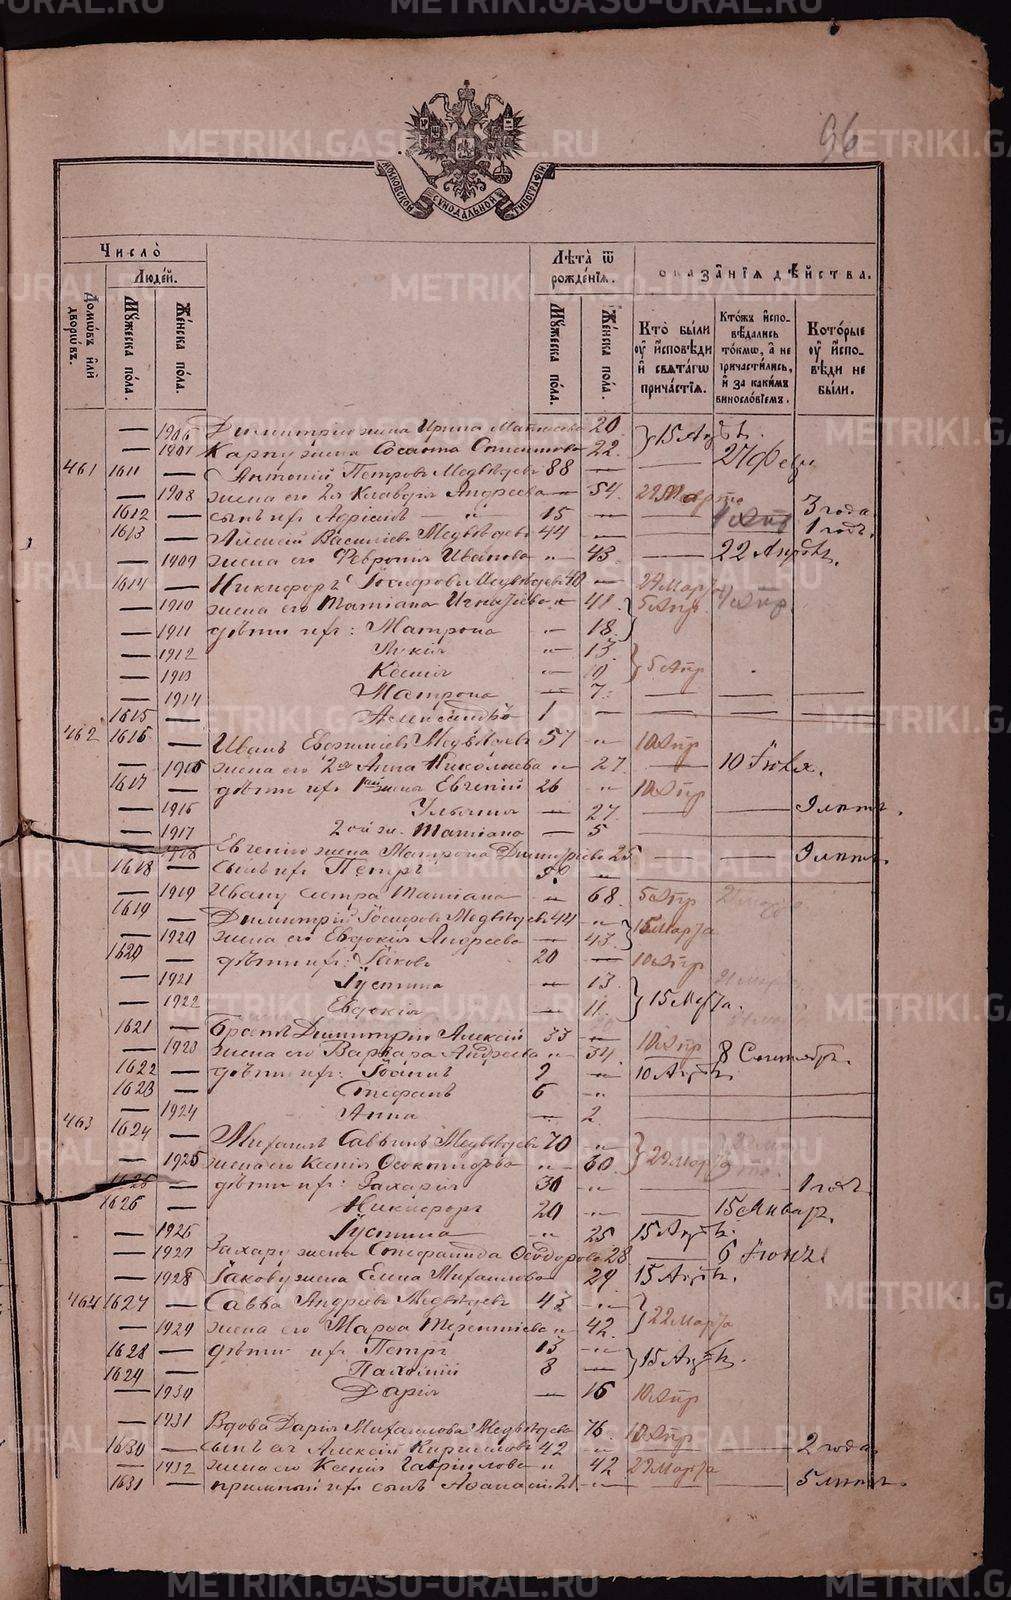 96
МОСКОВСКОЙ СѴНОДАЛЬНОЙ ТИПОГРАФІИ
Число̀
Людéй.
Домѡ́въ и҆лѝ дворѡ́въ.
Мꙋ́жеска пóла.
Жéнска пóла.
Лѣ́та ѿ рождéнїѧ.
Мꙋ́жеска пóла.
Жéнска пóла.
Ѻказанїѧ дѣ́йства.
Ктò бы́ли ᲂу҆ и҆сповѣди и҆ свѧтáгѡ причáстїѧ.
Ктóжъ и҆сповѣ́дались тóкмѡ, а҆ не причастились, и҆ за какимъ винослóвїемъ.
Котóрые ᲂу҆ и҆споведи не бы́ли.
— 1906 Димитрію жена Ирина Матѳеева 20
15 Авг.
— 1907 Карпу жена Сосанна 22.
27 Фев.
461 1611 — Антоній Петровъ Медвѣдевъ 88 —
— 1908 жена его 2я Клавдія Андреева — 54. 22 Марта
1612 — сынъ их Адріанъ 15 — — 3 года
1613 — Алексѣй Васильевъ Медвѣдевъ 44 — 1 годъ.
— 1909 жена его Февронія Иванова " 43. — 22 Апрѣл.
1614 — Никифоръ Іосифовъ Медвѣдевъ 40 — 24 Марта
— 1910 жена его Татіана Игнатьева " 41. 5 Апр.
— 1911 дѣти их: Матрона " 18.
— 1912 Лукія " 13
— 1913 Ксенія " 10 5 Апр
— 1914 Матрона — 7. — — —
1615 — Александръ 1 — — — —
462 1616 — Иванъ Евгеніевъ Медвѣдевъ 57 " 10 Апр
— 1915 жена его 2я Анна Николаева " 27. — 10 Іюля.
1617 — дѣти их 1й жена Евгеній 26 " 10 Апр
— 1916 Ульянія — 27. — — 9 лѣтъ.
— 1917 2ой ж. Татіана — 5 — —
— 1918 Евгенію жена Матрона Димитріева 25 — — 9 лѣтъ.
1618 — сынъ их Петръ
— 1919 Ивану сестра Татіана " 68. 5 Апр
1619 — Димитрій Іосифовъ Медвѣдевъ 44 "
— 1920 жена его Евдокія Андреева — 43. 15 Марта
1620 — дѣти их: Іаковъ 20 — 10 Апр
— 1921 Іустина — 13.
— 1922 Евдокія — 11. 15 Марта.
1621 — Братъ Димитрію Алексій 33 — 10 Апр
— 1923 жена его Варвара Андреева " 34. 8 Сентябр.
1622 — дѣти их: Іоаннъ 9 " 10 Авг.
1623 — Стефанъ 6 "
— 1924 Анна — 2.
463 1624 — Михаилъ Саввинъ Медвѣдевъ 70 "
— 1925 жена его Ксенія Ѳеоктистова " 60 20 Марта
1625 — дѣти их: Захарія 30 " — — 1 годъ
1626 — Никифоръ 20 " — 15 Январ.
— 1926 Іустина " 25 15 Авг.
— 1927 Захару жена Стефанида Ѳеодорова 28 — 6 Іюня
— 1928 Іакову жена Елена Михаилова 29 15 Авг.
464 1627 — Савва Андреевъ Медвѣдевъ 43 "
— 1929 жена его Марѳа Терентіева " 42. 22 Марта
1628 — дѣти их Петръ 13 "
1629 — Пахомій 8 — 15 Авг.
— 1930 Дарія — 16 10 Апр
— 1931 Вдова Дарія Михаилова Медвѣдева 76 10 Апр
1630 — сынъ ея Алексій Кириловъ 42 " — — 2 года
— 1932 жена его Ксенія Гавриилова " 42 22 Марта
1631 — пріемный их сынъ Аѳанасій 21 " — — 5 лѣтъ.
METRIKI.GASO-URAL.RU